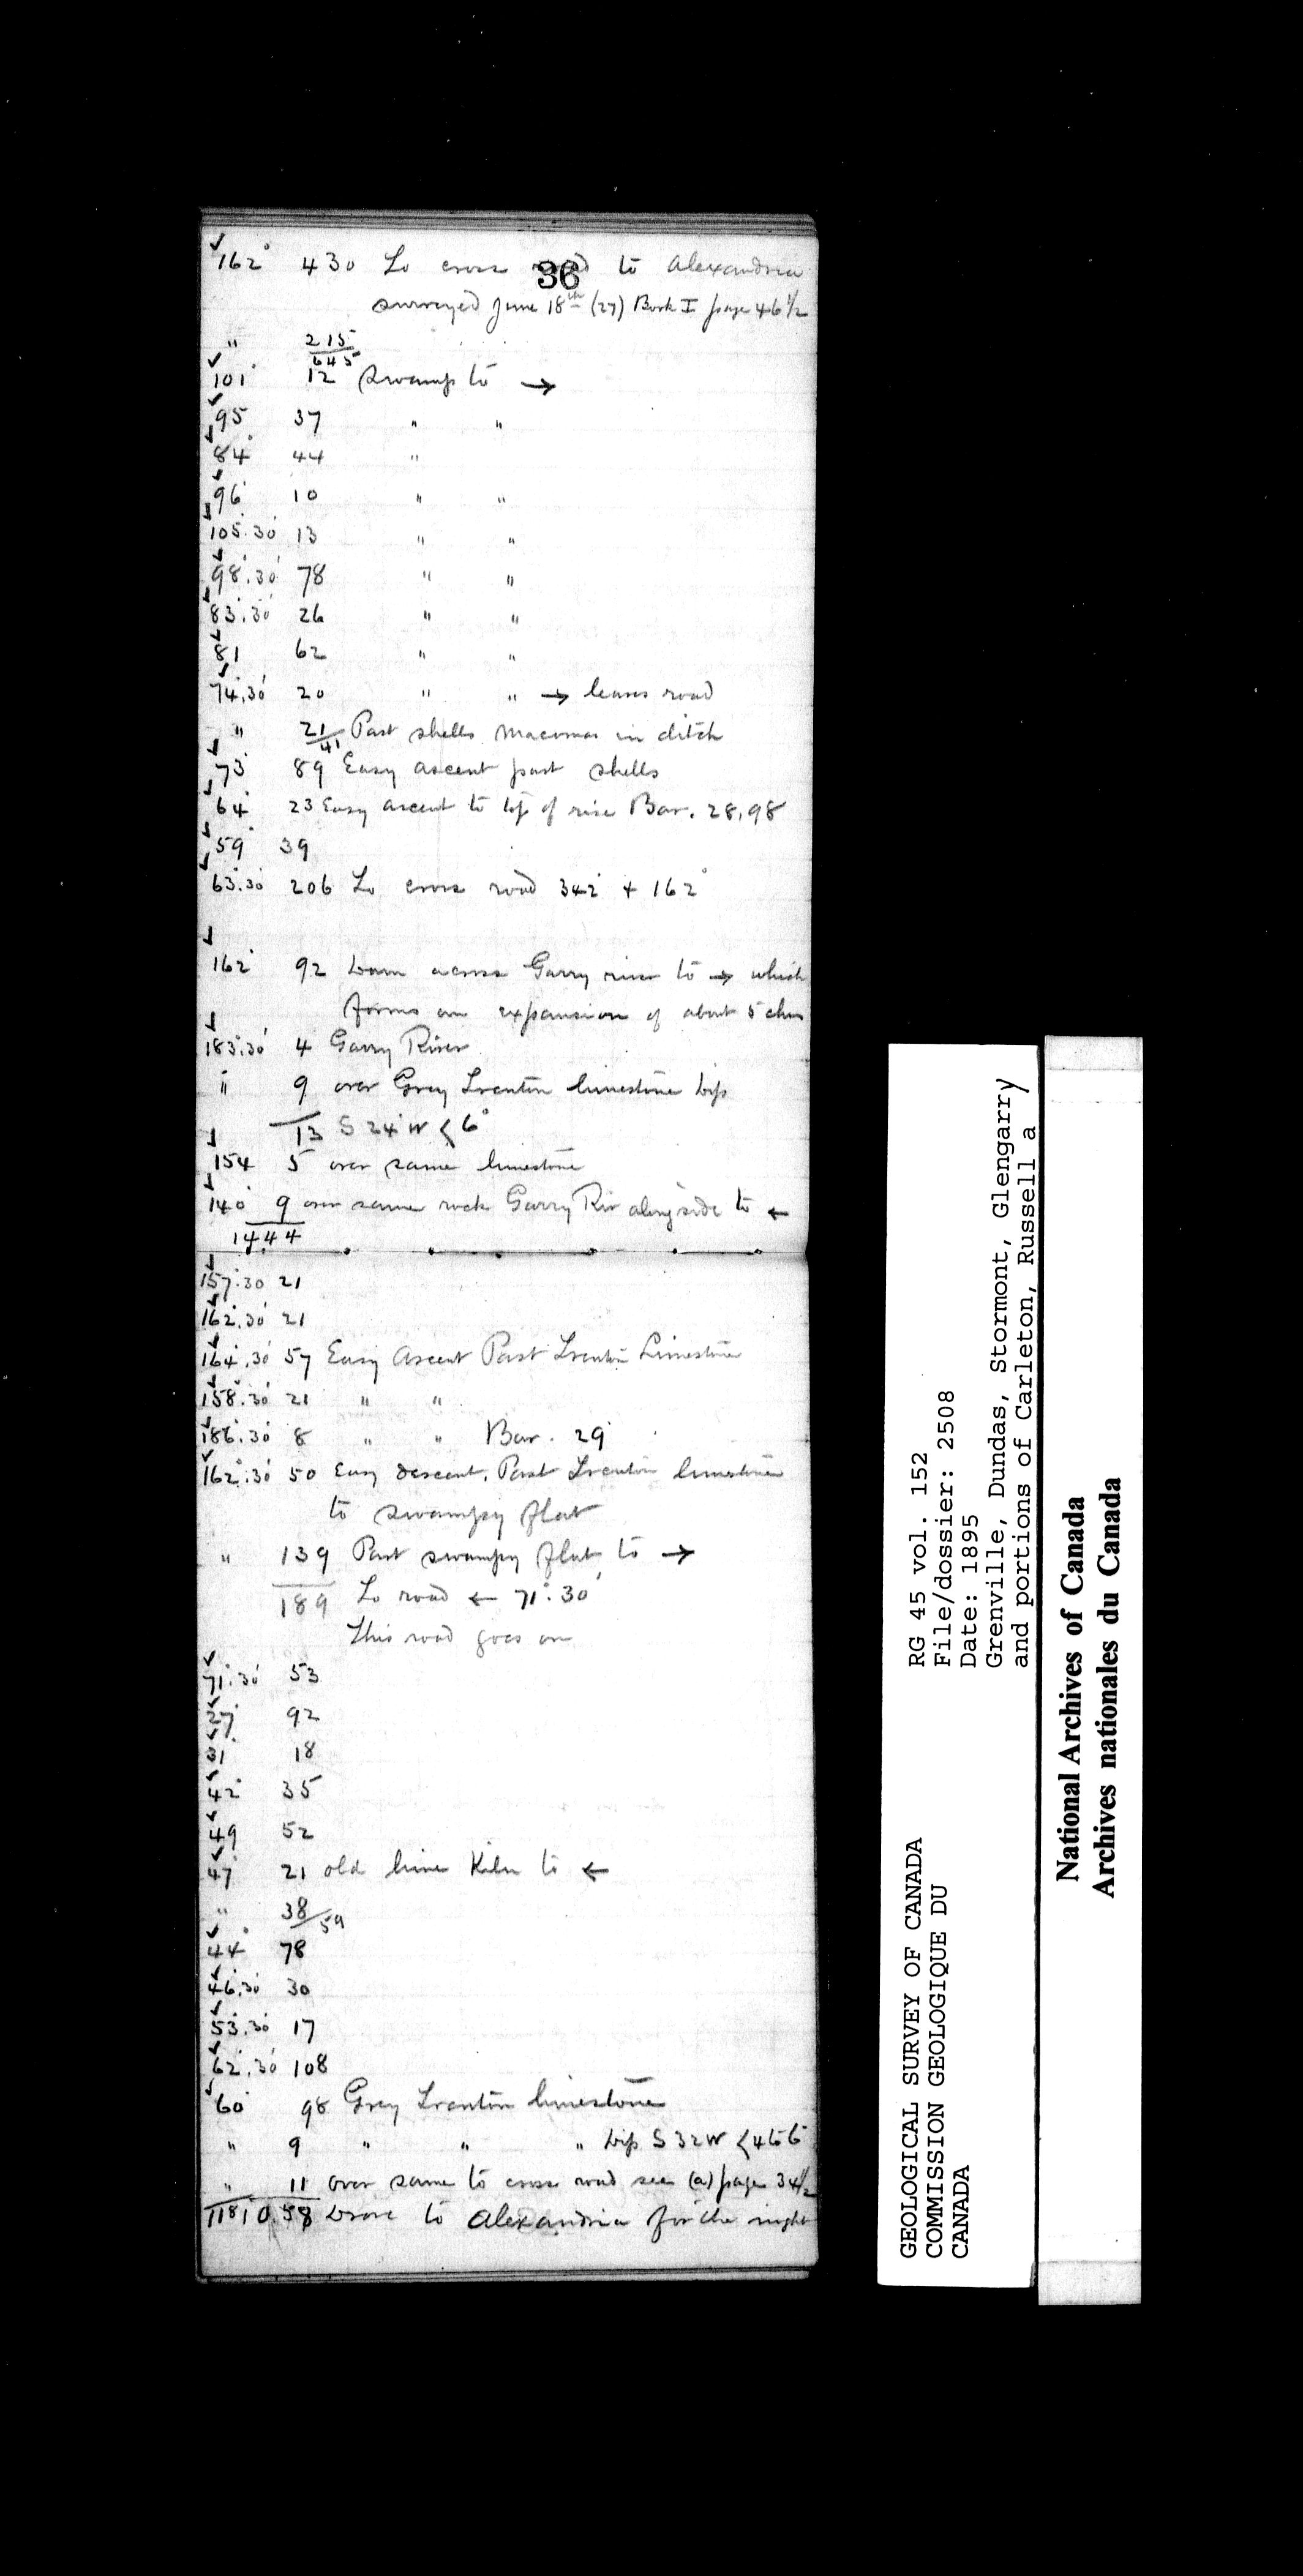 36
162° 430 To cross road to Alexandria
surveyed June 18th (27) Book I page 46 1/2
" 215
645
101° 12 Swamp to →
95° 37 " "
84° 44 "
96° 10 " "
105°.30' 13 " "
98°.30' 78 " "
83°.30' 26 " "
81 62 " "
74°.30' 20 " " → leaves road
" 21/41 Past shells Macomas in ditch
73° 89 Easy ascent past shells
64° 23 Easy ascent to top of rise Bar. 28.98
59° 39
63°.30' 206 To cross road 342° + 162°
162° 92 Down across Garry river to → which
forms an expansion of about 5 chns
183°.30' 4 Garry River
" 9 over Grey Trenton limestone Dip
13 S 24° W < 6°
154 5 over same limestone
140° 9 over same rock Garry Riv alongside to ←
1444
157°.30 21
162°.30' 21
164°.30' 57 Easy Ascent Past Trenton Limestone
158°.30' 21 " "
186°.30' 8 " " Bar. 29
162°.30' 50 Easy descent. Past Trenton limestone
to swampy flat
" 139 Past swampy flat to →
189 To road ← 71°.30'
This road goes on
71°.30' 53
27° 92
31° 18
42° 35
49 52
47° 21 old lime Kiln to ←
" 38/59
44° 78
46°.30' 30
53°.30' 17
62°.30' 108
60° 98 Grey Trenton limestone
" 9 " " " Dip S 32 W <
" 11 over same to cross road see (a) page 34 1/2
Drove to Alexandria for the night
GEOLOGICAL SURVEY OF CANADA
COMMISSION GEOLOGIQUE DU
CANADA
RG 45 vol. 152
File/dossier: 2508
Date: 1895
Grenville, Dundas, Stormont, Glengarry
and portions of Carleton, Russell a
y
National Archives of Canada
Archives nationales du Canada